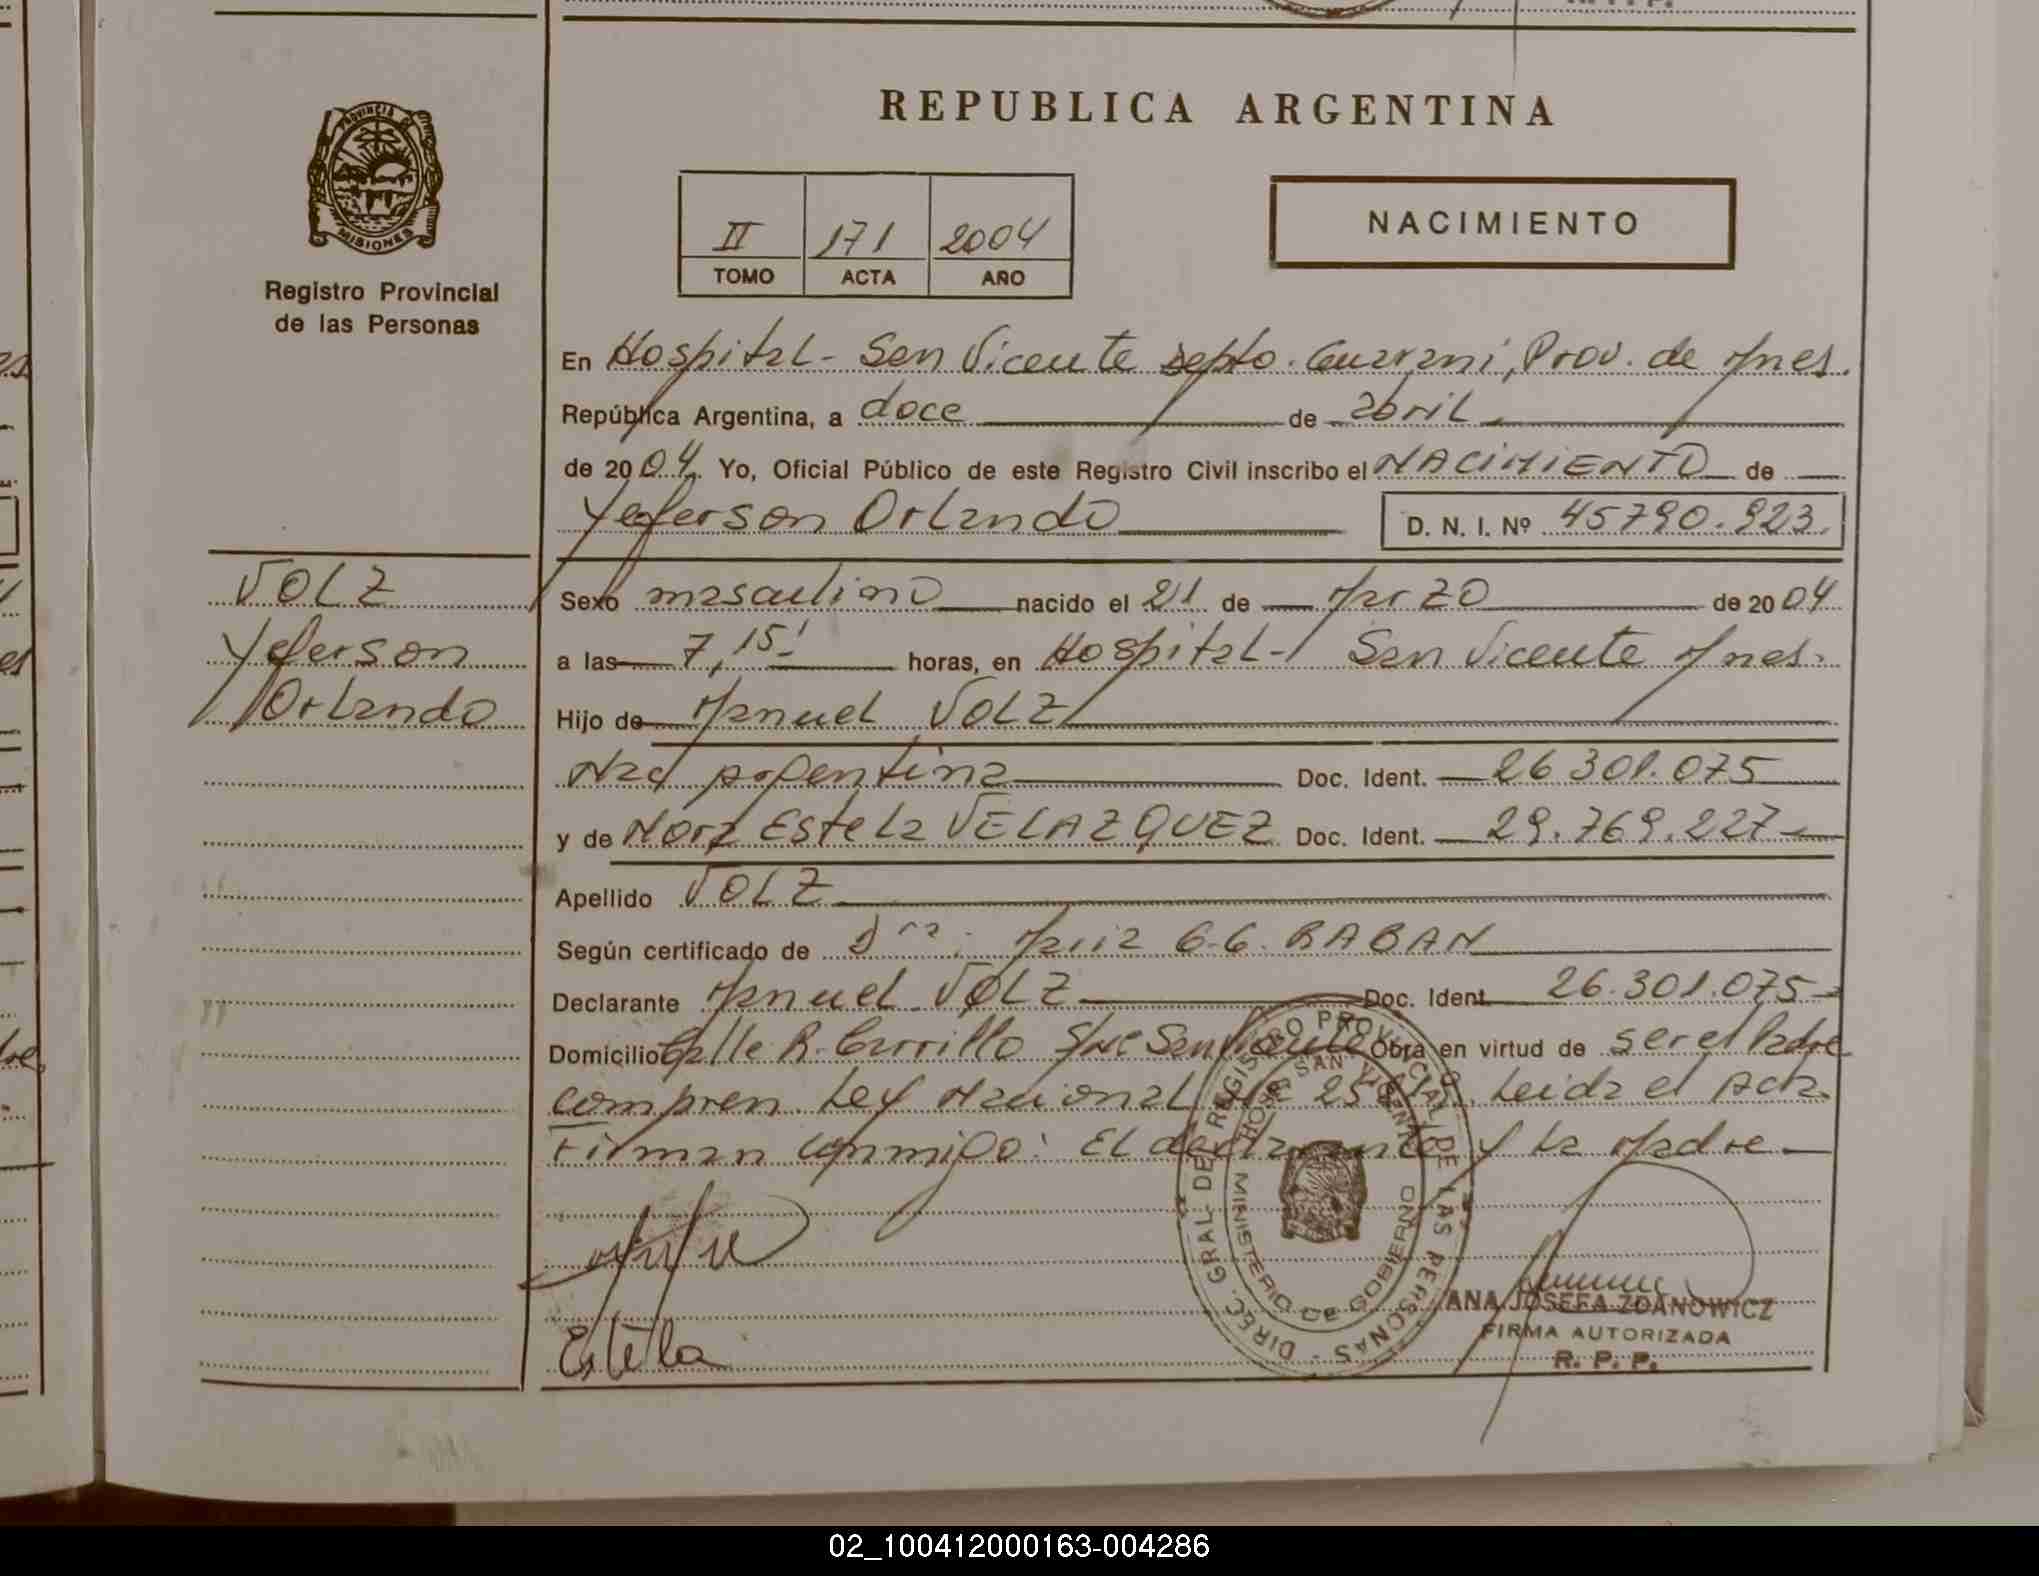 REPUBLICA ARGENTINA
PROVINCIA DE
MISIONES
Registro Provincial
de las Personas
II 171 2004
TOMO ACTA AÑO
NACIMIENTO
En Hospital - San Vicente Depto. Guarani, Prov. de Mnes.
República Argentina, a doce de abril
de 2004. Yo, Oficial Público de este Registro Civil inscribo el NACIMIENTO de
Yeferson Orlando D. N. I. Nº 45790.923.
VOLZ
Yeferson
Orlando
Sexo masculino nacido el 21 de Marzo de 2004
a las 7,15' horas, en Hospital - San Vicente Mnes.
Hijo de Manuel VOLZ
Nac Argentina Doc. Ident. 26.301.075
y de Nora Estela VELAZQUEZ Doc. Ident. 29.769.227
Apellido VOLZ
Según certificado de Dra. Maria G. G. RABAN
Declarante Manuel VOLZ Doc. Ident. 26.301.075
Domicilio Calle R. Carrillo S/Nº San Vicente Obra en virtud de ser el Padre
compren Ley Nacional Leida el Acta
Firman conmigo: El declarante y la Madre
DIREC. GRAL. DEL REGISTRO PROVINCIAL DE LAS PERSONAS
MINISTERIO DE GOBIERNO
SAN VICENTE
Estela
ANA JOSEFA ZDANOWICZ
FIRMA AUTORIZADA
R. P. P.
02_100412000163-004286